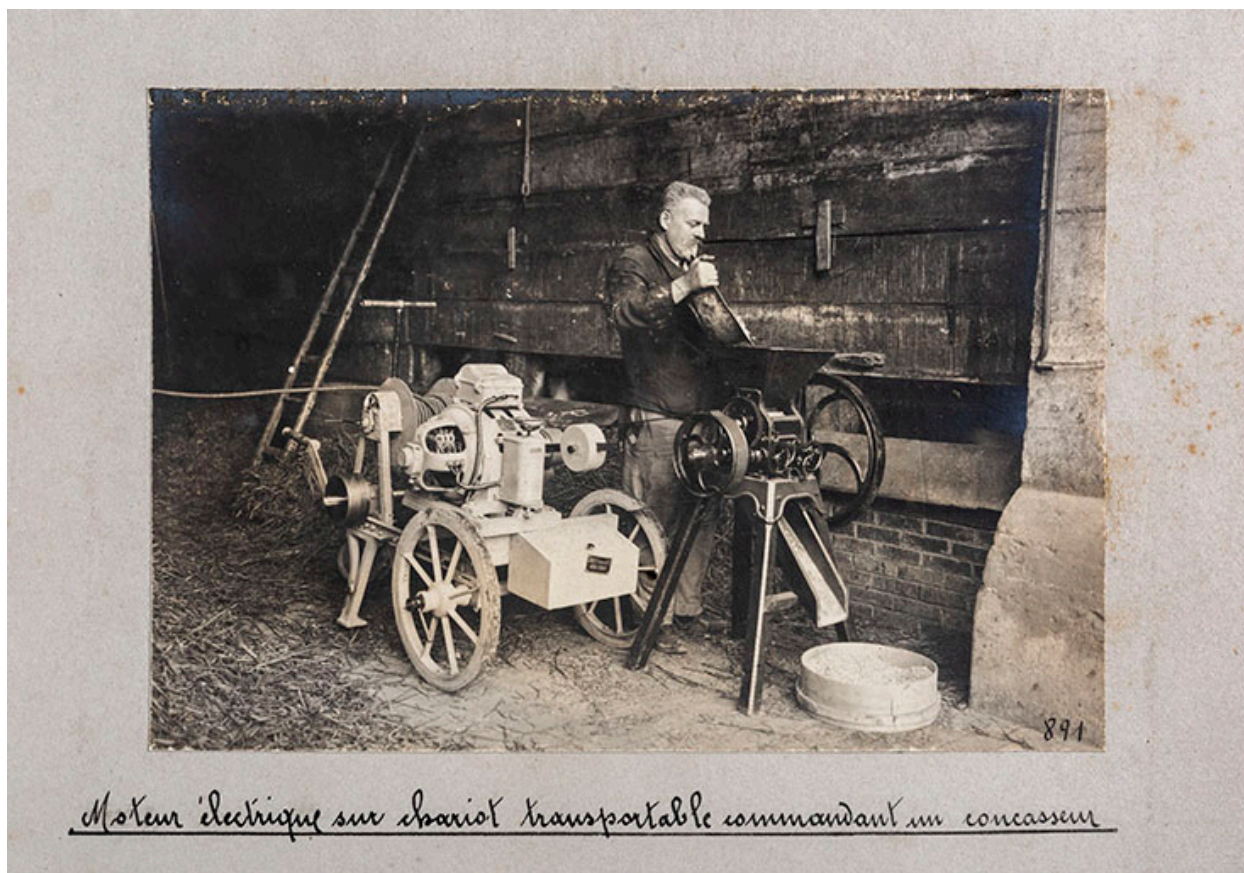 891
Moteur électrique sur chariot transportable commandant un concasseur